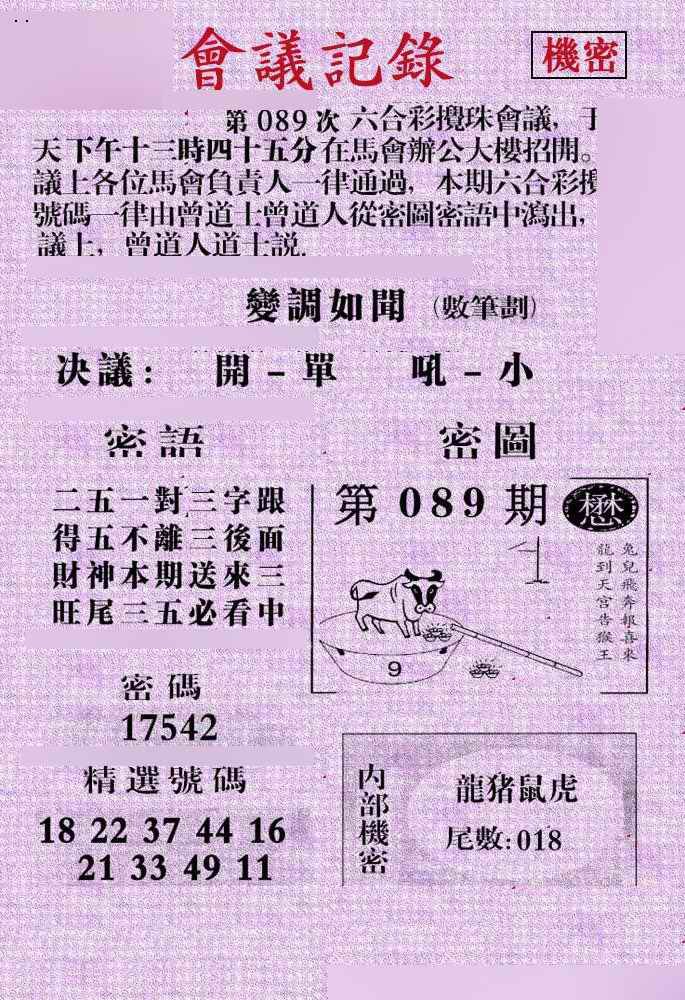 會議記錄
機密
第 089 次 六合彩攪珠會議，于
天下午十三時四十五分在馬會辦公大樓招開。
議上各位馬會負責人一律通過，本期六合彩攪
號碼一律由曾道士曾道人從密圖密語中瀉出，
議上，曾道人道士説.
變調如聞（數筆劃）
决議： 開－單 吼－小
密語
二五一對三字跟
得五不離三後面
財神本期送來三
旺尾三五必看中
密碼
17542
精選號碼
18 22 37 44 16
21 33 49 11
密圖
第 089 期
懋
兔兒飛奔報喜來
龍到天宮告猴王
9
内部機密
龍猪鼠虎
尾數:018